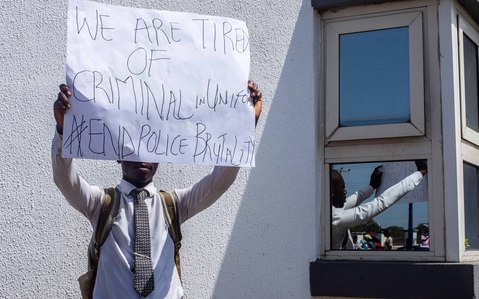 WE ARE TIRED
OF
CRIMINAL IN UNIFORM
#END POLICE BRUTALITY